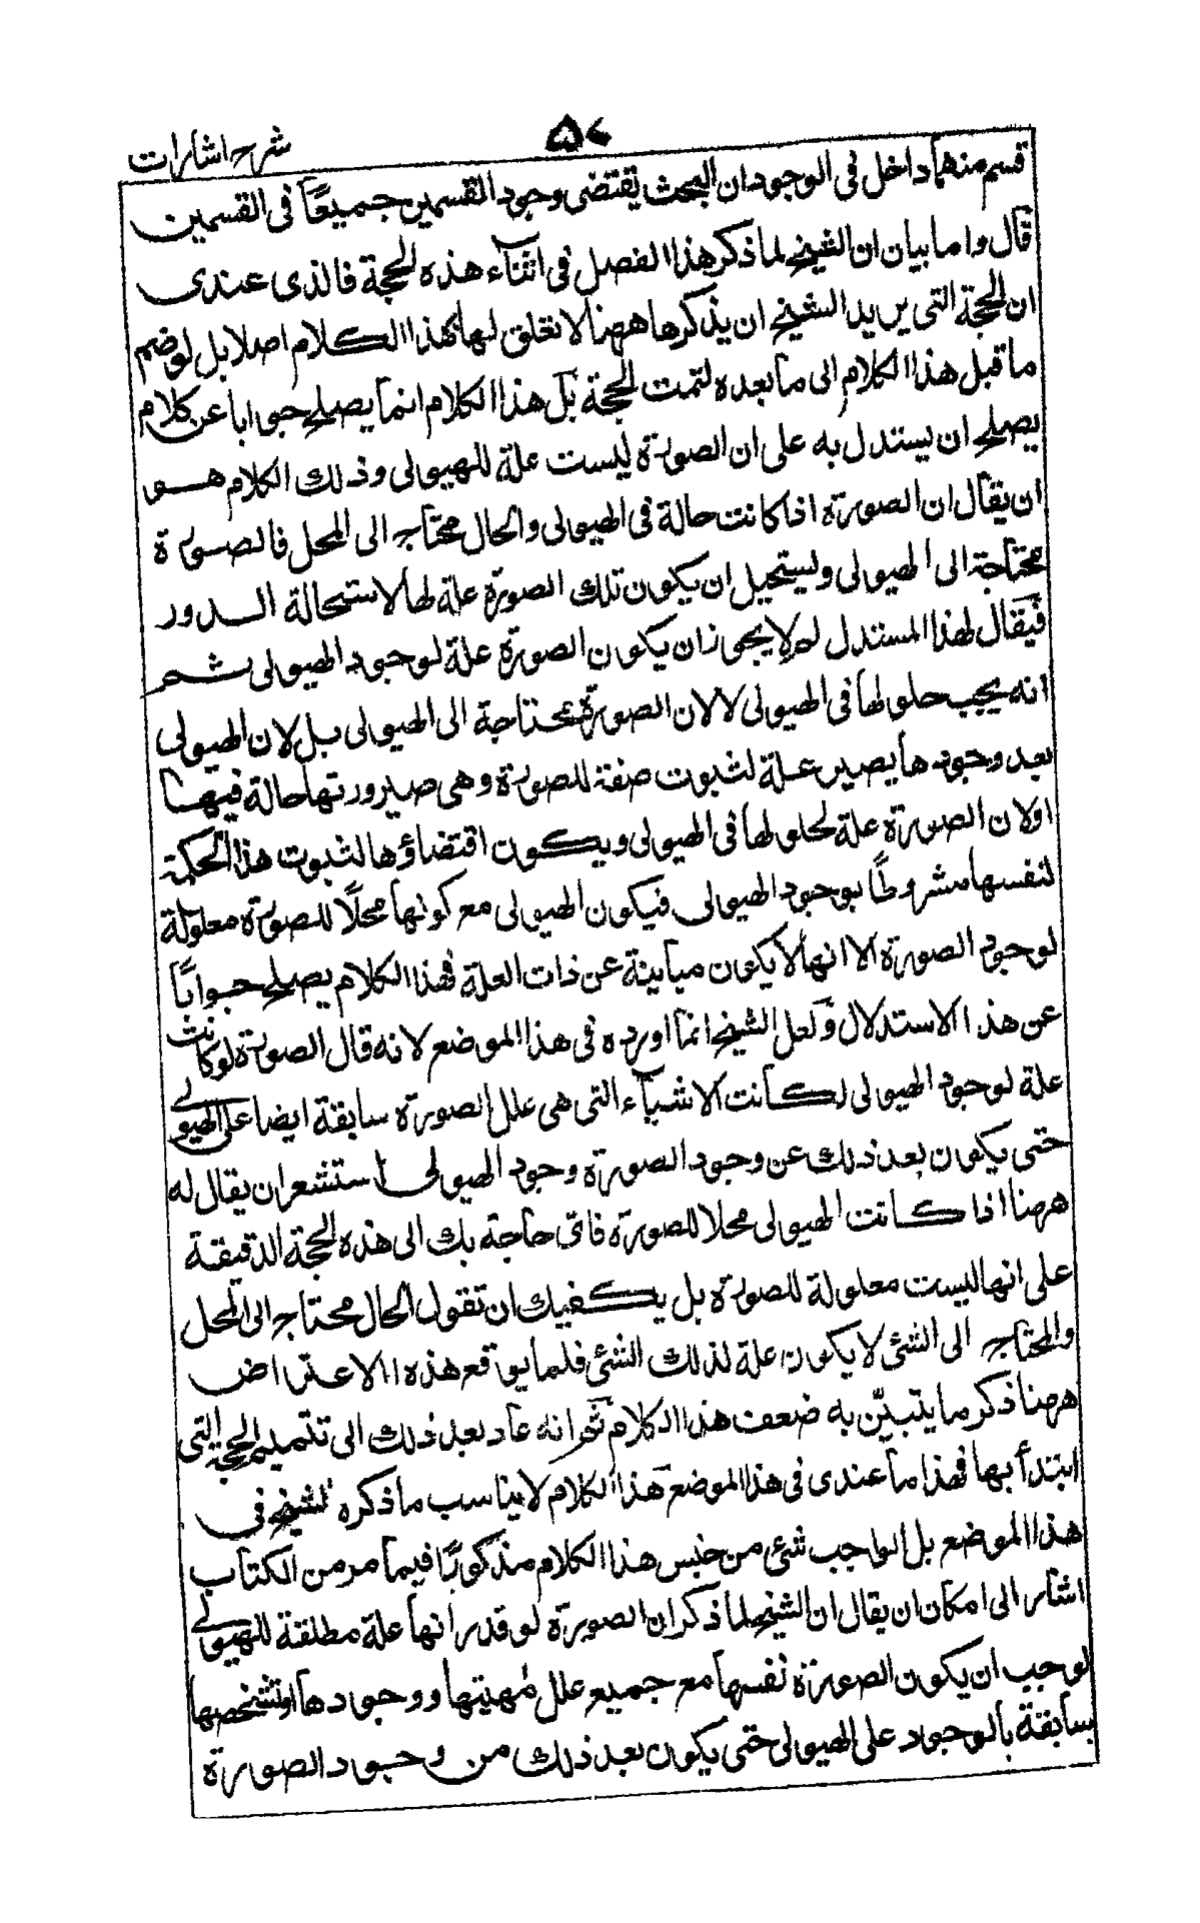 شرح اشارات
٥٧
قسم منهما داخل فى الوجود ان البحث يقتضى وجود القسمين جميعًا فى القسمين
قال واما بيان ان الشيخ لما ذكر هذا الفصل فى اثناء هذه الحجة فالذى عندى
ان الحجة التى يريد الشيخ ان يذكرها ههنا لا تعلق لها بهذا الكلام اصلا بل لو ضم
ما قبل هذا الكلام الى ما بعده لتمت الحجة بل هذا الكلام انما يصلح جوابا عن كلام
يصلح ان يستدل به على ان الصورة ليست علة للهيولى وذلك الكلام هو
ان يقال ان الصورة اذا كانت حالة فى الهيولى والحال محتاج الى المحل فالصورة
محتاجة الى الهيولى ويستحيل ان يكون تلك الصورة علة لها لاستحالة الدور
فيقال لهذا المستدل لم لا يجوز ان يكون الصورة علة لوجود الهيولى ثم
انه يجب حلولها فى الهيولى لا لان الصورة محتاجة الى الهيولى بل لان الهيولى
بعد وجودها يصير علة لثبوت صفة للصورة وهى صيرورتها حالة فيها
او لان الصورة علة لحلولها فى الهيولى ويكون اقتضاؤها لثبوت هذا الحكمة
لنفسها مشروطًا بوجود الهيولى فيكون الهيولى مع كونها محلًا للصورة معلولة
لوجود الصورة الا انها لا يكون مباينة عن ذات العلة فهذا الكلام يصلح جوابًا
عن هذا الاستدلال ولعل الشيخ انما اورده فى هذا الموضع لانه قال الصورة لو كانت
علة لوجود الهيولى لكانت الاشياء التى هى علل الصورة سابقة ايضا على الهيولى
حتى يكون بعد ذلك عن وجود الصورة وجود الهيولى استشعر ان يقال له
ههنا اذا كانت الهيولى محلا للصورة فاى حاجة بك الى هذه الحجة الدقيقة
على انها ليست معلولة للصورة بل يكفيك ان تقول الحال محتاج الى المحل
والمحتاج الى الشئ لا يكون علة لذلك الشئ فلما يوقع هذه الاعتراض
ههنا ذكر ما يتبيّن به ضعف هذا الكلام ثم انه عاد بعد ذلك الى تتميم الحجة التى
ابتدأ بها فهذا ما عندى فى هذا الموضع هذا الكلام لا يناسب ما ذكره الشيخ فى
هذا الموضع بل الواجب شئ من جنس هذا الكلام مذكورًا فيما مر من الكتاب
اشار الى امكان ان يقال ان الشيخ لما ذكر ان الصورة لو قدر انها علة مطلقة للهيولى
لوجب ان يكون الصورة نفسها مع جميع علل مهيتها ووجودها وتشخصها
سابقة بالوجود على الهيولى حتى يكون بعد ذلك من وجود الصورة